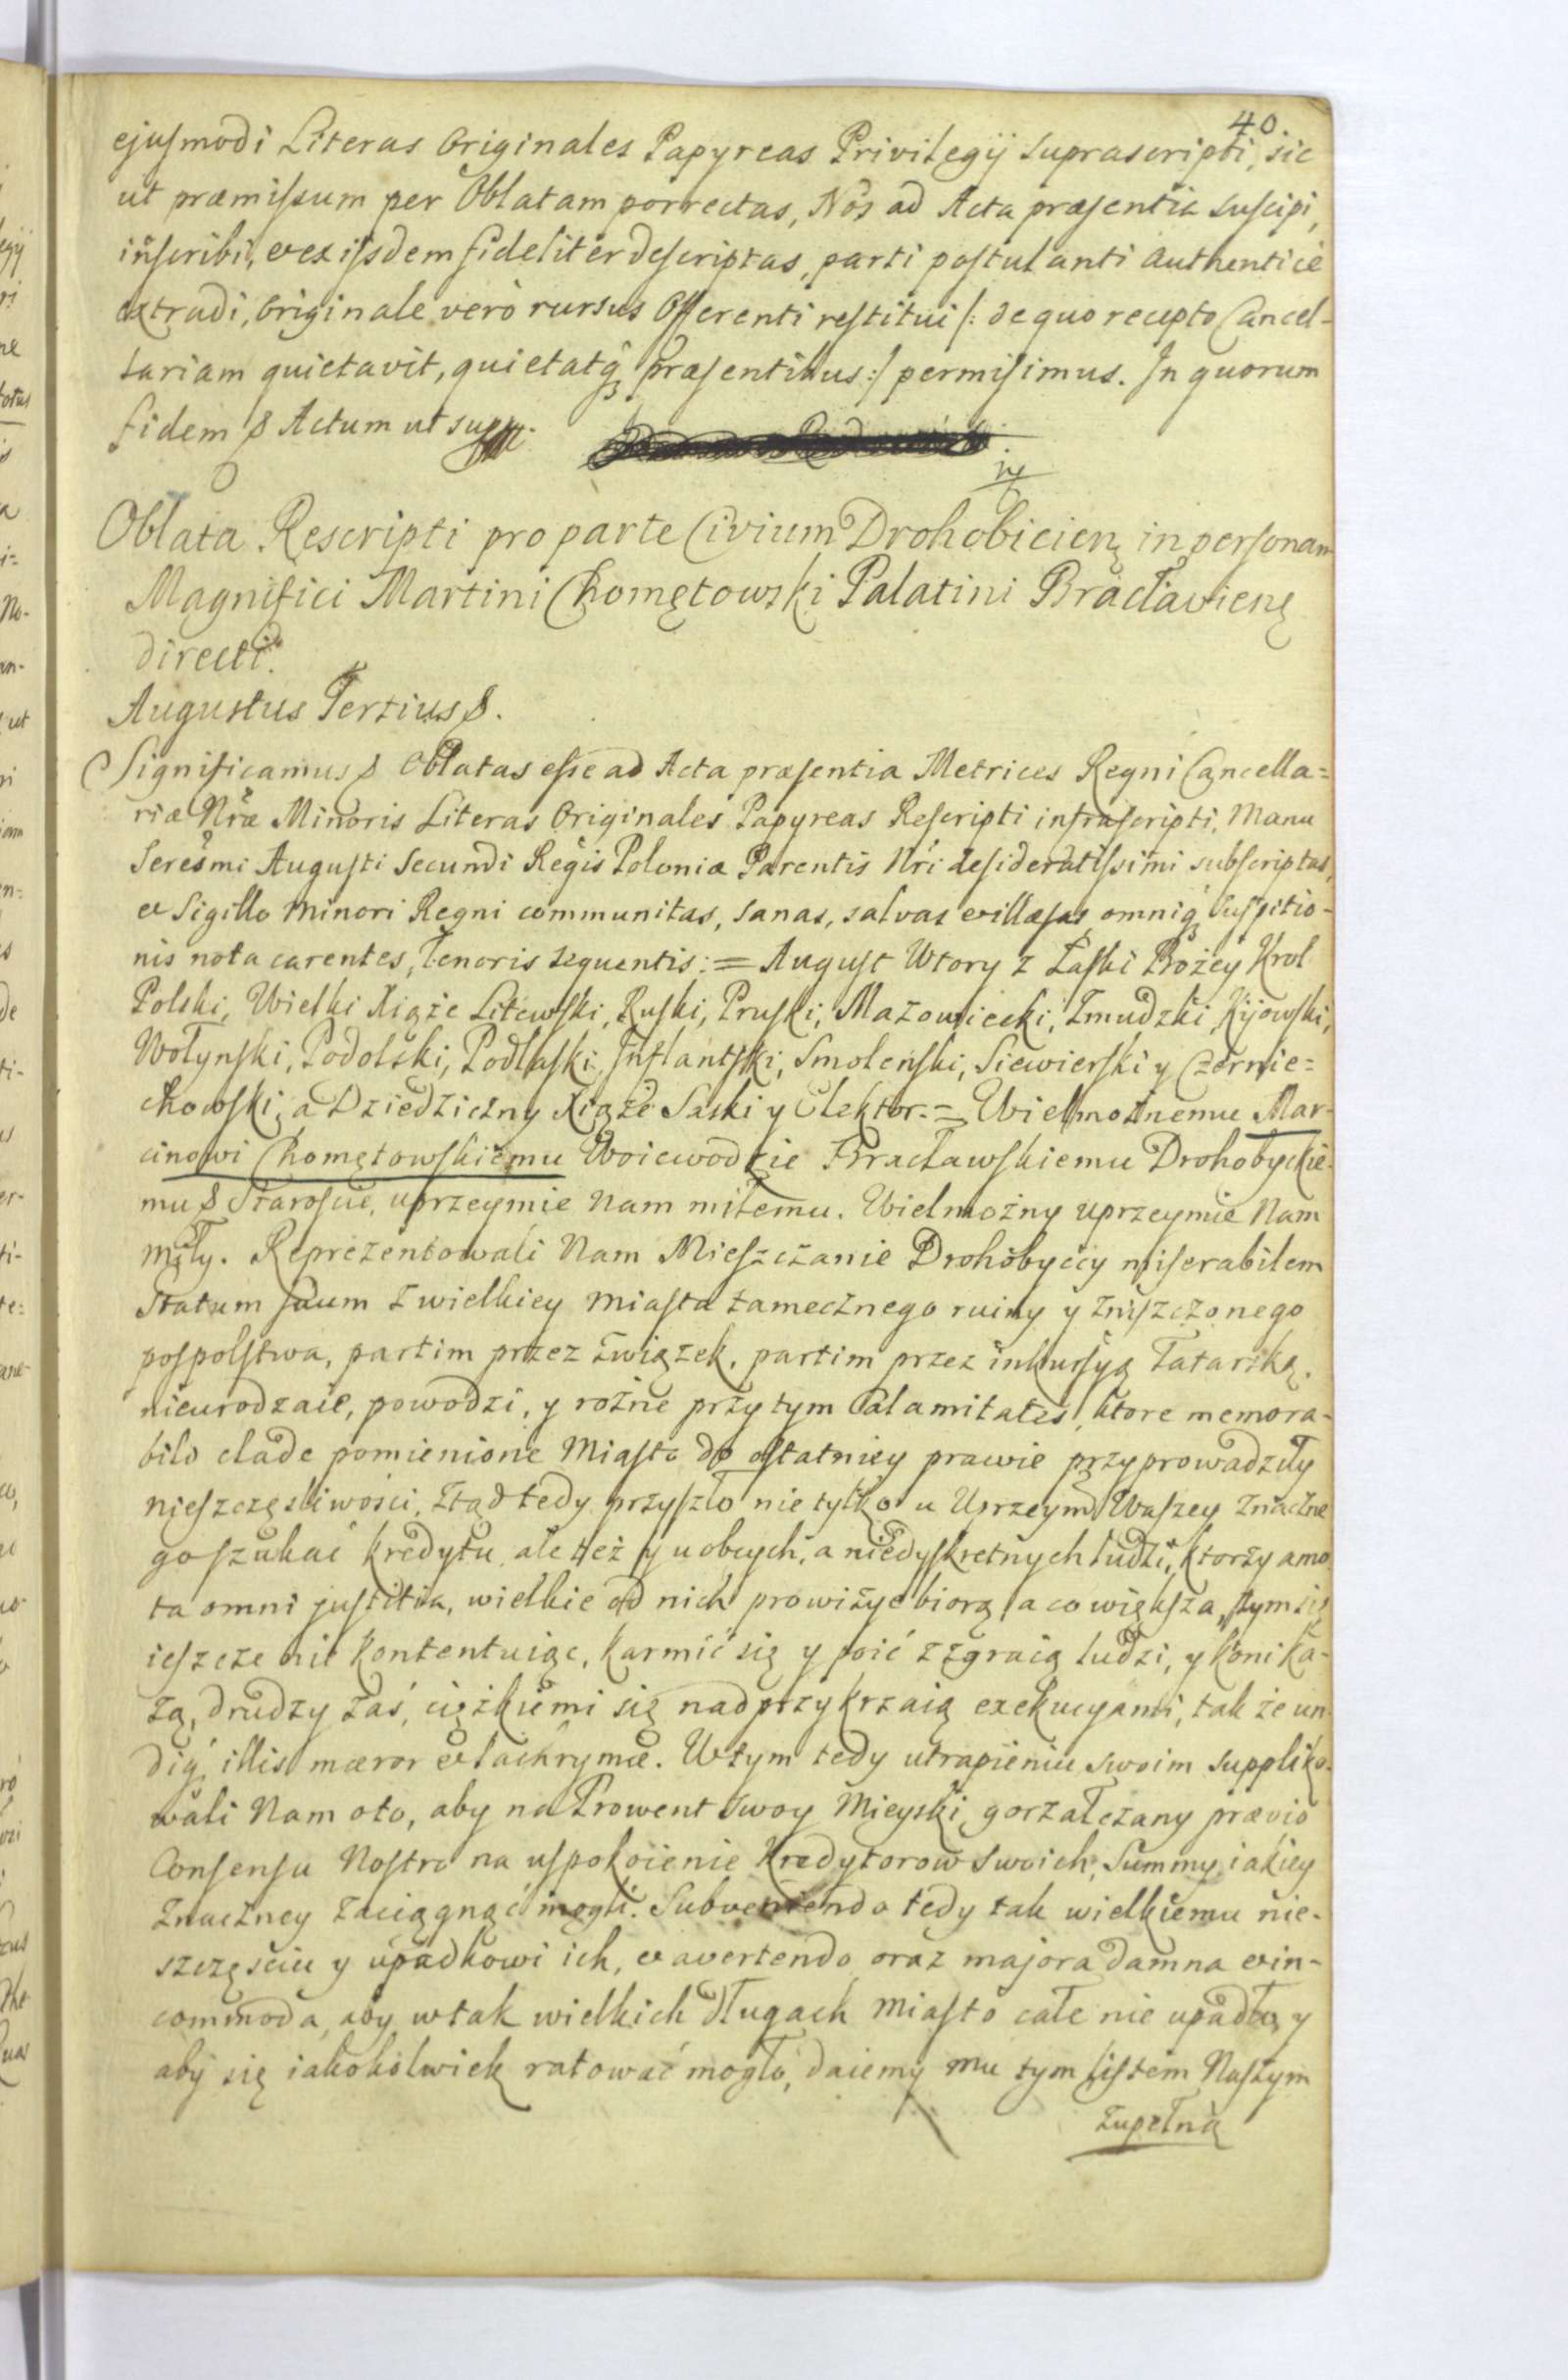 40.
ejusmodi Literas Originales Papyreas Privilegij suprascripti, sic
ut præmissum per Oblatam porrectas, Nos ad Acta præsentia suscipi,
inscribi, et ex iisdem fideliter descriptas, parti postulanti Authenticè
extradi, Originale verò rursus Offerenti restitui /: de quo recepto Cancel-
lariam quietavit, quietatq præsentibus :/ permisimus. In quorum
fidem & Actum ut supra.
Oblata Rescripti pro parte Civium Drohobicien in personam
Magnifici Martini Chomętowski Palatini Bracłavien
directi.
Augustus Tertius &.
Significamus & Oblatas esse ad Acta præsentia Metrices Regni Cancella=
riæ Nræ Minoris Literas Originales Papyreas Rescripti infrascripti, Manu
Seresmi Augusti Secundi Regis Poloniæ Parentis Nri desideratissimi subscriptas,
et Sigillo Minori Regni communitas, sanas, salvas et illæsas, omniq suspitio-
nis nota carentes, Tenoris sequentis: = August Wtory z Łaski Bożey Krol
Polski, Wielki Xiąże Litewski, Ruski, Pruski, Mazowiecki, Zmudzki, Kijowski,
Wołynski, Podolski, Podlaski, Inflantski, Smolenski, Siewierski y Czernie=
chowski, a Dziedziczny Xiąże Saski y Elektor. = Wielmożnemu Mar-
cinowi Chomętowskiemu Woiewodzie Bracławskiemu Drohobyckie-
mu & Staroscie, uprzeymie Nam miłemu. Wielmożny uprzeymie Nam
Miły. Reprezentowali Nam Mieszczanie Drohobyccy miserabilem
Statum suum z wielkiey miasta tamecznego ruiny y zniszczonego
pospolstwa, partim przez związek, partim przez inkursyą Tatarską,
nieurodzaie, powodzi, y rożne przy tym Calamitates, ktore memora-
bili clade pomienione Miasto do ostatniey prawie przyprowadziły
nieszczęsliwości, Ztąd tedy przyszło nie tylko u Uprzeym Waszey znaczne
go szukać kredytu ale też y u obcych, a niedyskretnych ludzi, ktorzy amo
ta omni justitia, wielkie od nich prowizye biorą, a co większa, tym się
ieszcze nie kontentuiąc, karmić się y poić z zgraią ludzi, y koni ka-
żą, drudzy zaś, ciężkiemi się nadprzykrzaią exekucyami, tak że un
diq illis mæror et lachrymæ. W tym tedy utrapieniu swoim suppliko-
wali Nam oto, aby na Prowent swoy Mieyski, gorzałczany prævio
Consensu Nostro na uspokoienie Kredytorow swoich, Summy iakiey
znaczney zaciągnąć mogli. Subveniendo tedy tak wielkiemu nie-
szczęsciu y upadkowi ich, et avertendo oraz majora damna et in-
commoda, aby w tak wielkich Długach Miasto całe nie upadło, y
aby się iakokolwiek ratować mogło, daiemy mu tym listem Naszym
zupełną